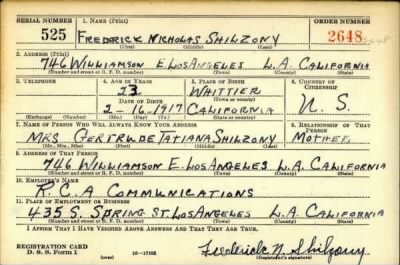 SERIAL NUMBER 1. NAME (Print) ORDER NUMBER
525 FREDERICK NICHOLAS SHILZONY 2648
(First) (Middle) (Last)
2. ADDRESS (Print)
746 WILLIAMSON E. LOS ANGELES L.A. CALIFORNIA
(Number and street or R. F. D. number) (Town) (County) (State)
3. TELEPHONE 4. AGE IN YEARS 5. PLACE OF BIRTH 6. COUNTRY OF CITIZENSHIP
23 WHITTIER
DATE OF BIRTH (Town or county)
2-16-1917 CALIFORNIA U. S.
(Exchange) (Number) (Mo.) (Day) (Yr.) (State or country)
7. NAME OF PERSON WHO WILL ALWAYS KNOW YOUR ADDRESS 8. RELATIONSHIP OF THAT PERSON
MRS GERTRUDE TATIANA SHILZONY MOTHER
(Mr., Mrs., Miss) (First) (Middle) (Last)
9. ADDRESS OF THAT PERSON
746 WILLIAMSON E. LOS ANGELES L.A. CALIFORNIA
(Number and street or R. F. D. number) (Town) (County) (State)
10. EMPLOYER'S NAME
R.C.A COMMUNICATIONS
11. PLACE OF EMPLOYMENT OR BUSINESS
435 S. SPRING ST. LOS ANGELES L.A. CALIFORNIA
(Number and street or R. F. D. number) (Town) (County) (State)
I AFFIRM THAT I HAVE VERIFIED ABOVE ANSWERS AND THAT THEY ARE TRUE.
REGISTRATION CARD
D. S. S. Form 1 (over) Frederick N Shilzony
(Registrant's signature)